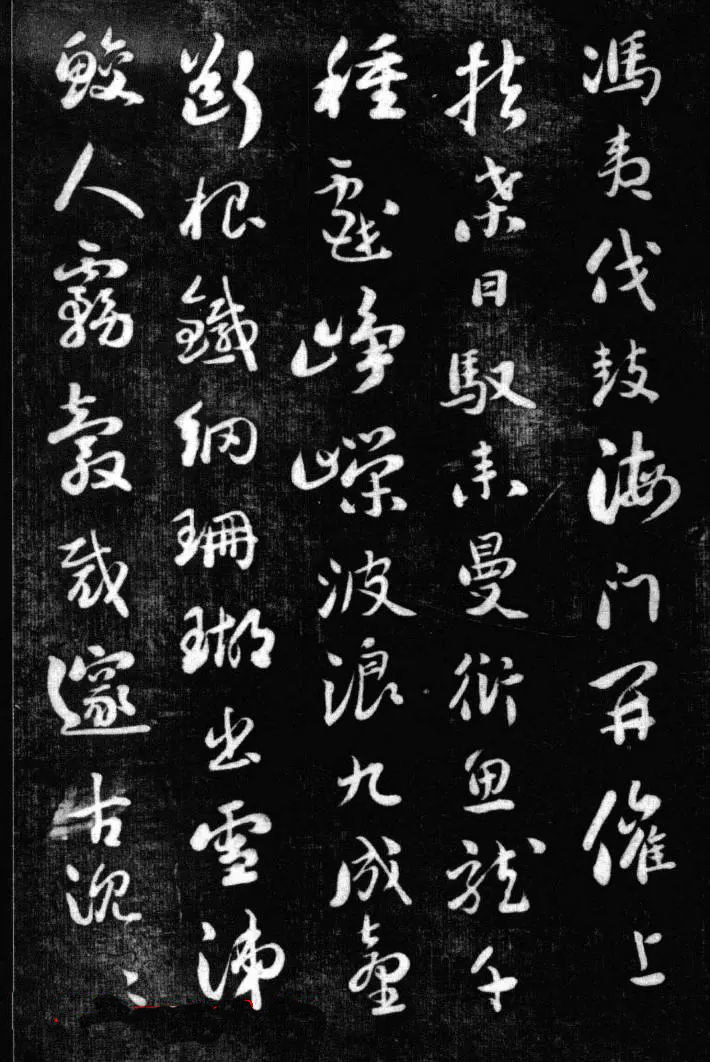 馮夷伐鼓海門開催上
扶桑日馭來曼衍魚龍千
種戲崢嶸波浪九成臺
斷根鐵網珊瑚出雪涕
鮫人霧縠裁邃古沉〻